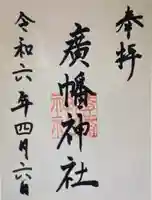 奉拝
廣幡神社
令和六年四月六日